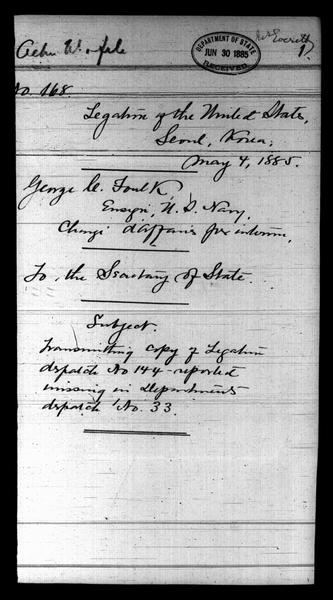 DEPARTMENT OF STATE
JUN 30 1885
RECEIVED
Mr Everett
1
No. 168.
Legation of the United States,
Seoul, Korea,
May 4, 1885.
George C. Foulk,
Ensign, U. S. Navy,
Chargé d'Affaires ad interim,
To, the Secretary of State.
Subject.
Transmitting copy of Legation
dispatch No 144 - reported
missing in Departments
dispatch No. 33.